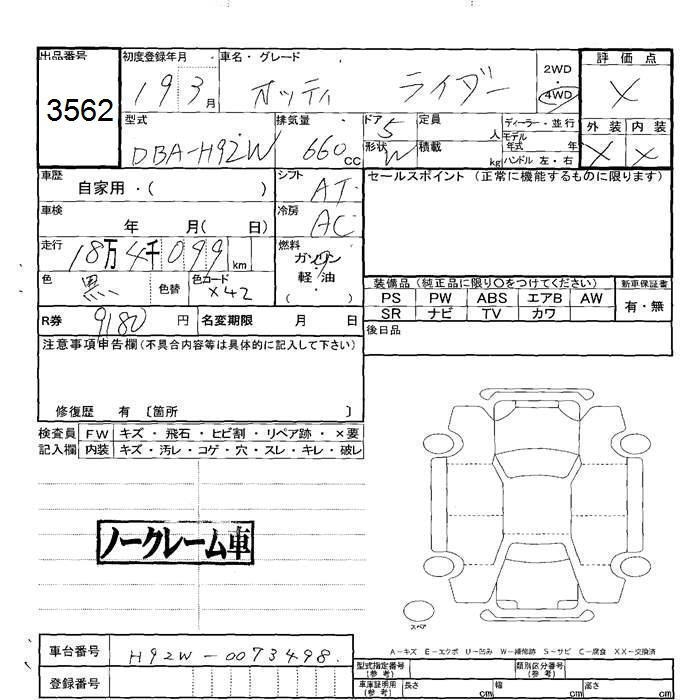 出品番号 初度登録年月 車名・グレード 2WD・4WD 評価点
3562 19 3月 オッティ ライダー X
型式 排気量 ドア 5 定員 人 ディーラー・並行 外装 内装
DBA-H92W 660cc 形状 W 積載 kg モデル年式 年 ハンドル 左・右 X X
車歴 自家用・( ) シフト AT セールスポイント (正常に機能するものに限ります)
車検 年 月( 日) 冷房 AC
走行 18万4千099km 燃料 ガソリン・軽油・( )
色 黒 色替 色コード X42 装備品 (純正品に限り○をつけてください) 新車保証書
PS PW ABS エアB AW 有・無
R券 9180円 名変期限 月 日 SR ナビ TV カワ
注意事項申告欄(不具合内容等は具体的に記入して下さい) 後日品
修復歴 有 〔箇所 〕
検査員 FW キズ・飛石・ヒビ割・リペア跡・×要
記入欄 内装 キズ・汚レ・コゲ・穴・スレ・キレ・破レ
ノークレーム車
スペア
A-キズ E-エクボ U-凹み W-補修跡 S-サビ C-腐食 XX-交換済
車台番号 H92W-0073498. 型式指定番号(参考) 類別区分番号(参考)
登録番号 車庫証明用(参考) 長さ cm 幅 cm 高さ cm